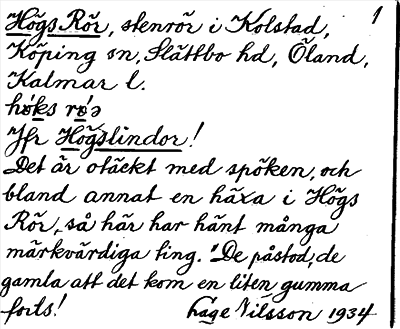 Högs Rör, stenrör i Kolstad, 1
Köping sn, Slättbo hd, Öland,
Kalmar l.
hø̄ks rø̄́ə
Jfr Högslindor!
Det är otäckt med spöken, och
bland annat en häxa i Högs
Rör, så här har hänt många
märkvärdiga ting. "De påstod, de
gamla att det kom en liten gumma
förls!
Lage Nilsson 1934